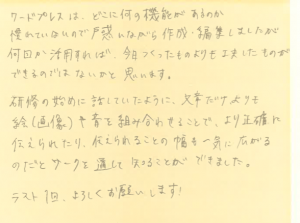 ワードプレスは、どこに何の機能があるのか
慣れていないので戸惑いながら作成・編集しましたが
何回か活用すれば、今回つくったものよりも工夫したものが
できるのではないかと思います。
研修の始めに話していたように、文章だけよりも
絵(画像)や音を組み合わせることで、より正確に
伝えられたり、伝えられることの幅も一気に広がる
のだとワークを通して知ることができました。
ラスト1回、よろしくお願いします!